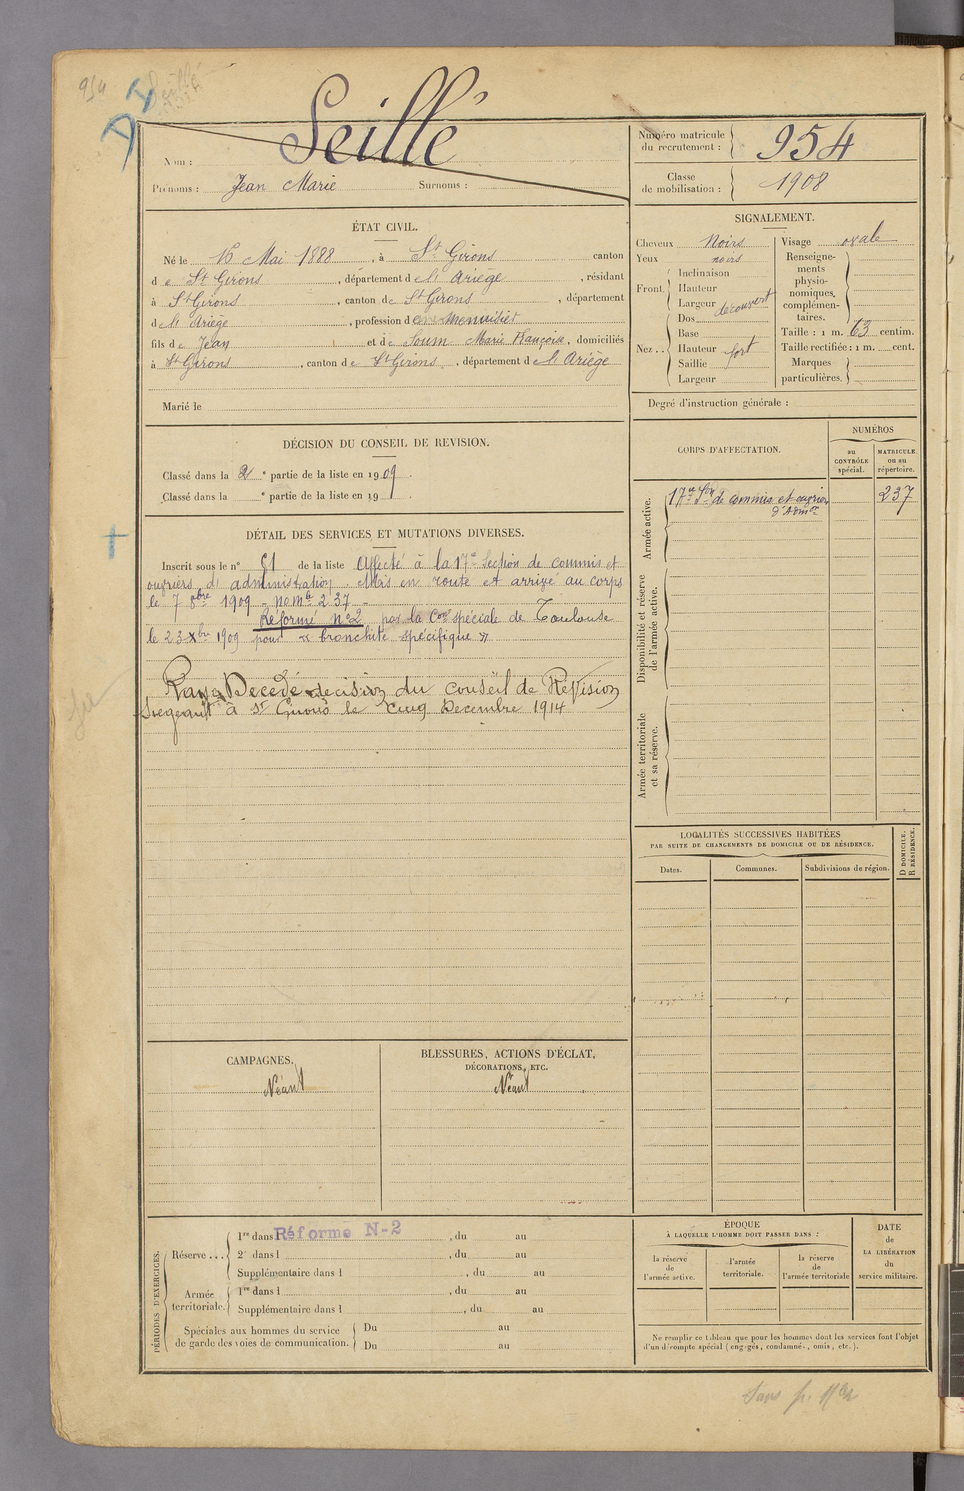 954
Seillé
Nom :
Prénoms : Jean Marie Surnoms :
Numéro matricule du recrutement : 954
Classe de mobilisation : 1908
ÉTAT CIVIL.
Né le 16 Mai 1888, à St Girons canton
de St Girons, département de l'Ariège, résidant
à St Girons, canton de St Girons, département
de l'Ariège, profession de menuisier
fils de Jean et de Soum Marie Françoise, domiciliés
à St Girons, canton de St Girons, département de l'Ariège
Marié le
SIGNALEMENT.
Cheveux Noirs
Yeux noirs
Front Inclinaison
Hauteur
Largeur découvert
Nez .. Dos
Base
Hauteur fort
Saillie
Largeur
Visage ovale
Renseigne-
ments
physio-
nomiques,
complémen-
taires.
Taille : 1 m. 63 centim.
Taille rectifiée : 1 m. cent.
Marques
particulières.
Degré d'instruction générale :
DÉCISION DU CONSEIL DE REVISION.
Classé dans la 2e partie de la liste en 1909.
Classé dans la e partie de la liste en 19 .
CORPS D'AFFECTATION.
NUMÉROS
au CONTRÔLE spécial.
MATRICULE ou au répertoire.
Armée active.
17e Son de commis et ouvriers 237
d'Admon
Disponibilité et réserve de l'armée active.
Armée territoriale et sa réserve.
DÉTAIL DES SERVICES ET MUTATIONS DIVERSES.
Inscrit sous le n° 61 de la liste Affecté à la 17e Section de commis et
ouvriers d'administration. Mis en route et arrivé au corps
le 7 8bre 1909 - no mle 237 -
Réformé no 2 par la Con spéciale de Toulouse
le 23 Xbre 1909 pour « bronchite spécifique »
Décédé décision du Conseil de Révision
siégeant à St Girons le cinq Décembre 1914
LOCALITÉS SUCCESSIVES HABITÉES
PAR SUITE DE CHANGEMENTS DE DOMICILE OU DE RÉSIDENCE.
D DOMICILE.
R RÉSIDENCE.
Dates. Communes. Subdivisions de région.
CAMPAGNES.
Néant
BLESSURES, ACTIONS D'ÉCLAT,
DÉCORATIONS, ETC.
Néant
PÉRIODES D'EXERCICES.
Réserve ... 1re dans l Réformé N-2, du au
2e dans l , du au
Supplémentaire dans l , du au
Armée territoriale. 1re dans l , du au
Supplémentaire dans l , du au
Spéciales aux hommes du service
de garde des voies de communication.
Du au
Du au
ÉPOQUE
À LAQUELLE L'HOMME DOIT PASSER DANS :
la réserve de l'armée active.
l'armée territoriale.
la réserve de l'armée territoriale
DATE de LA LIBÉRATION du service militaire.
Ne remplir ce tableau que pour les hommes dont les services font l'objet
d'un décompte spécial (engagés, condamnés, omis, etc.).